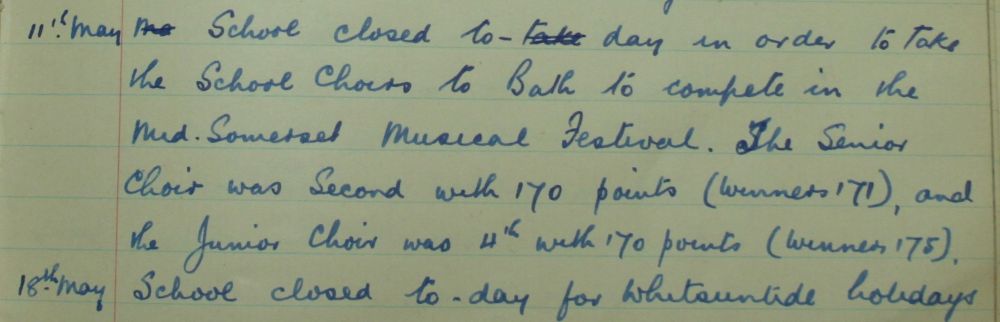 11th May School closed to-day in order to take
the School Choirs to Bath to compete in the
Mid. Somerset Musical Festival. The Senior
Choir was Second with 170 points (winners 171), and
the Junior Choir was 4th with 170 points (winners 175).
18th May School closed to-day for Whitsuntide holidays